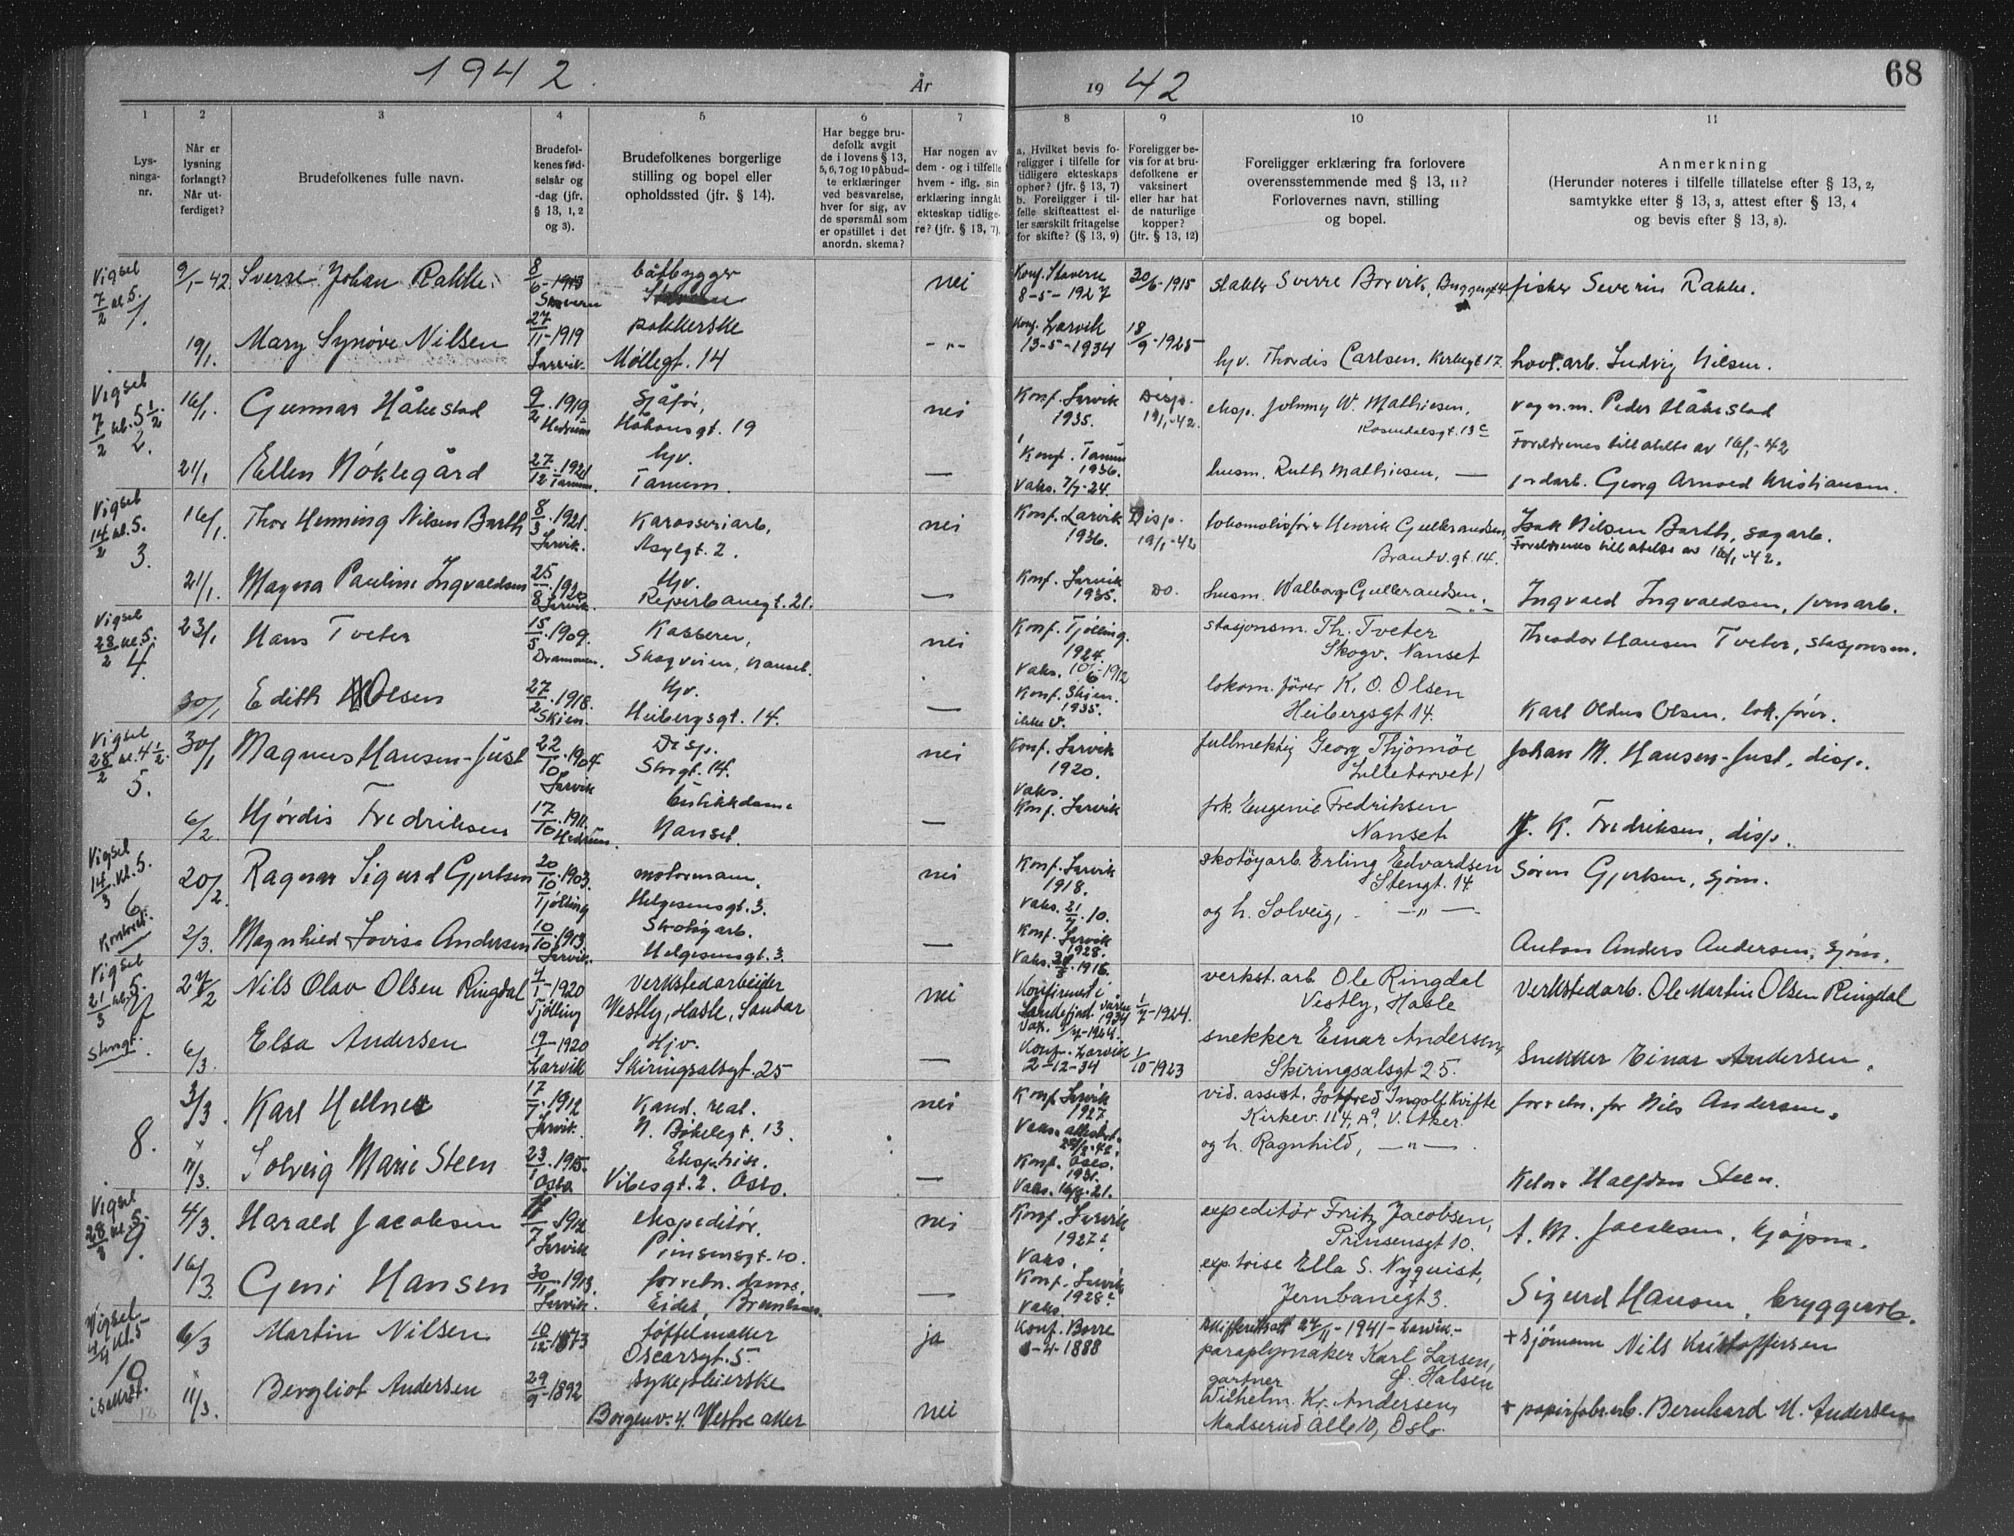 1942.
År
19 42
68
1
2
3
4
5
6
7
8
9
10
11
Lys-
nings-
nr.
Når er
lysning
forlangt?
Når ut-
ferdiget?
Brudefolkenes fulle navn.
Brudefol-
kenes fød-
selsår og
-dag (jfr.
§ 13, 1, 2
og 3).
Brudefolkenes borgerlige
stilling og bopel eller
opholdssted (jfr. § 14).
Har begge bru-
defolk avgit
de i lovens § 13,
5, 6, 7 og 10 påbud-
te erklæringer
ved besvarelse,
hver for sig, av
de spørsmål som
er opstillet i det
anordn. skema?
Har nogen av
dem - og i tilfelle
hvem - iflg. sin
erklæring inngåt
ekteskap tidlige-
re? (jfr. § 13, 7).
a. Hvilket bevis fo-
religger i tilfelle for
tidligere ekteskaps
ophør? (jfr. § 13, 7)
b. Foreligger i til-
felle skifteattest el-
ler særskilt fritagelse
for skifte? (§ 13, 9)
Foreligger be-
vis for at bru-
defolkene er
vaksinert
eller har hat
de naturlige
kopper?
(jfr. § 13, 12)
Foreligger erklæring fra forlovere
overensstemmende med § 13, 11?
Forlovernes navn, stilling
og bopel.
Anmerkning
(Herunder noteres i tilfelle tillatelse efter § 13, 2,
samtykke efter § 13, 3, attest efter § 13, 4
og bevis efter § 13, 8).
Vigsel 7/2 kl. 5. 1.
9/1-42. Sverre Johan Rakke. 8/6-1913 Stavern båtbygger nei Konf. Stavern 8-5-1927 30/6-1915 Sverre Borvik, Byggegt 4 fisker Severin Rakke.
19/1. Mary Synøve Nilsen 27/11-1919 Larvik pakkerske Møllegt. 14 -"- Konf. Larvik 13-5-1934 18/9-1925 hjv. Thordis Carlsen. Kirkegt 17. hovl.arb. Ludvig Nilsen.
Vigsel 7/2 kl. 5 1/2. 2.
16/1. Gunnar Håkestad 9/2.1919. Hedrum Sjåfør, Håkonsgt. 19 nei Konf. Larvik 1935. Disp. 19/1-42. eksp. Johnny W. Mathisen, Rosendalsgt. 13 c vogn.m. Peder Håkestad
Foreldrenes tillatelse av 16/1-42
21/1 Ellen Nøklegård 27/12.1921 Tanum. hjv. Tanum. — Konf. Tanum 1936. Vaks. 7/7-24. husm. Ruth Mathisen, — jordarb. Georg Arnold Kristiansen.
Vigsel 14/2 kl. 5. 3.
16/1. Thor Henning Nilsen Barth 8/3.1921. Larvik. Karosseriarb, Asylgt. 2. nei Konf. Larvik 1936. Disp. 19/1-42 lokomotivfører Henrik Gulbrandsen, Brandv.gt. 14. Isak Nilsen Barth, sagarb.
Foreldrenes tillatelse av 16/1-42.
21/1. Magna Pauline Ingvaldsen 25/8.1920 Larvik. Hjv. Reperbanegt. 21. — Konf. Larvik 1935. Do. husm. Walborg Gulbrandsen. Ingvald Ingvaldsen, formarb.
Vigsel 28/2 kl. 5. 4.
23/1 Hans Tveter 15/5.1909. Drammen. Kasserer, Skogveien, Nanset. nei Konf. Tjølling. 1924. Vaks. 10/6-1912 stasjonsm. Th. Tveter Skogv. Nanset Theodor Hansen Tveter, stasjonsm.
30/1 Edith Olsen 27/2.1918. Skien. Hjv. Heibergsgt. 14. — Konf. Skien. 1935. ikke v. lokom. fører K. O. Olsen Heibergsgt 14. Karl Oldus Olsen. lok. fører.
Vigsel 28/2 kl. 4 1/2. 5.
30/1 Magnus Hansen-Just 22/10.1904. Larvik Disp. Storgt. 14. nei Konf. Larvik 1920. Vaks. fullmektig Georg Thjømøe Lilletorvet 1 Johan M. Hansen-Just, disp.
6/2 Hjørdis Fredriksen 17/10.1911. Hedrum. butikkdame Nanset. — Konf. Larvik frk. Eugenie Fredriksen Nanset K. Fredriksen, disp.
Vigsel 14/3. kl. 5. 6. Kontoret.
20/2. Ragnar Sigurd Gjertsen 20/10.1903. Tjølling motormann. Helgesensgt. 3. nei Konf. Larvik 1918. Vaks. 21/7.10. skotøyarb. Erling Edvardsen Stengt. 14 Søren Gjertsen, sjøm.
og h. Solveig, —"—
2/3. Magnhild Lovise Andersen 10/10.1913. Larvik. Skotøyarb. Helgesensgt. 3. — Konf. Larvik 1928. Anton Anders Andersen, sjøm.
Vigsel 21/3 kl. 5. 7 Stengt.
27/2 Nils Olav Olsen Ringdal 4/1-1920 Tjølling verkstedarbeider Vestly, Hasle, Sandar nei Konfirmert i Sandefjord 1934 1/7-1924. verkst. arb Ole Ringdal Vestly, Hasle Verkstedarb. Ole Martin Olsen Ringdal
6/3. Elsa Andersen 19/1-1920 Larvik Hjv. Skiringsalsgt. 25 — Konf. Larvik 2-12-34 1/10-1923 snekker Einar Andersen, Skiringsalsgt 25. Snekker Einar Andersen.
8.
3/3. Karl Hellnes 17/7.1912 Larvik. Kand. real. N. Bøkelegt. 13. nei Konf. Larvik 1927. Vaks. attest vid. assist. Gotfred Ingolf Kvifte Kirkev. 114, A, V. Aker forretn. for Nils Andersen.
og h. Ragnhild, —"—
7/3. Solveig Marie Steen 23/1.1915. Oslo Eksp.trise. Vibesgt. 2. Oslo. — Konf. Oslo. 1931. Vaks. 16/8.21. Keln. Halfdan Steen.
Vigsel 28/3 kl. 5. 9.
4/3. Harald Jacobsen 1912 Larvik ekspeditør. Prinsensgt. 10. nei Konf. Larvik 1927. Vaks. expeditør Fritz Jacobsen, Prinsensgt 10. A. M. Jacobsen, kjøpm.
16/3. Geni Hansen 30/11.1913. Larvik. forretn. dame. Eidet, Brunlanes. — Konf. Larvik 1928. Vaks. exp.trise Ella S. Nyquist, Jernbanegt 3. Sigurd Hansen, bryggeriarb.
Vigsel 4/4 kl. 5 10 i sakrist.
6/3 Martin Nilsen 10/12-1873 tøffelmaker Oscarsgt. 5. ja Konf. Borre -4-1888 Skifteattest 24/11-1941-Larvik.- paraplymaker Karl Larsen, + Sjømann Nils Kristoffersen
11/3. Bergliot Andersen 29/9-1892 sykepleierske Borgenv. 4. Vestre Aker nei gartner Wilhelm Kr. Andersen, Madserud Allé 10, Oslo. + papirfabr.arb. Bernhard M. Andersen